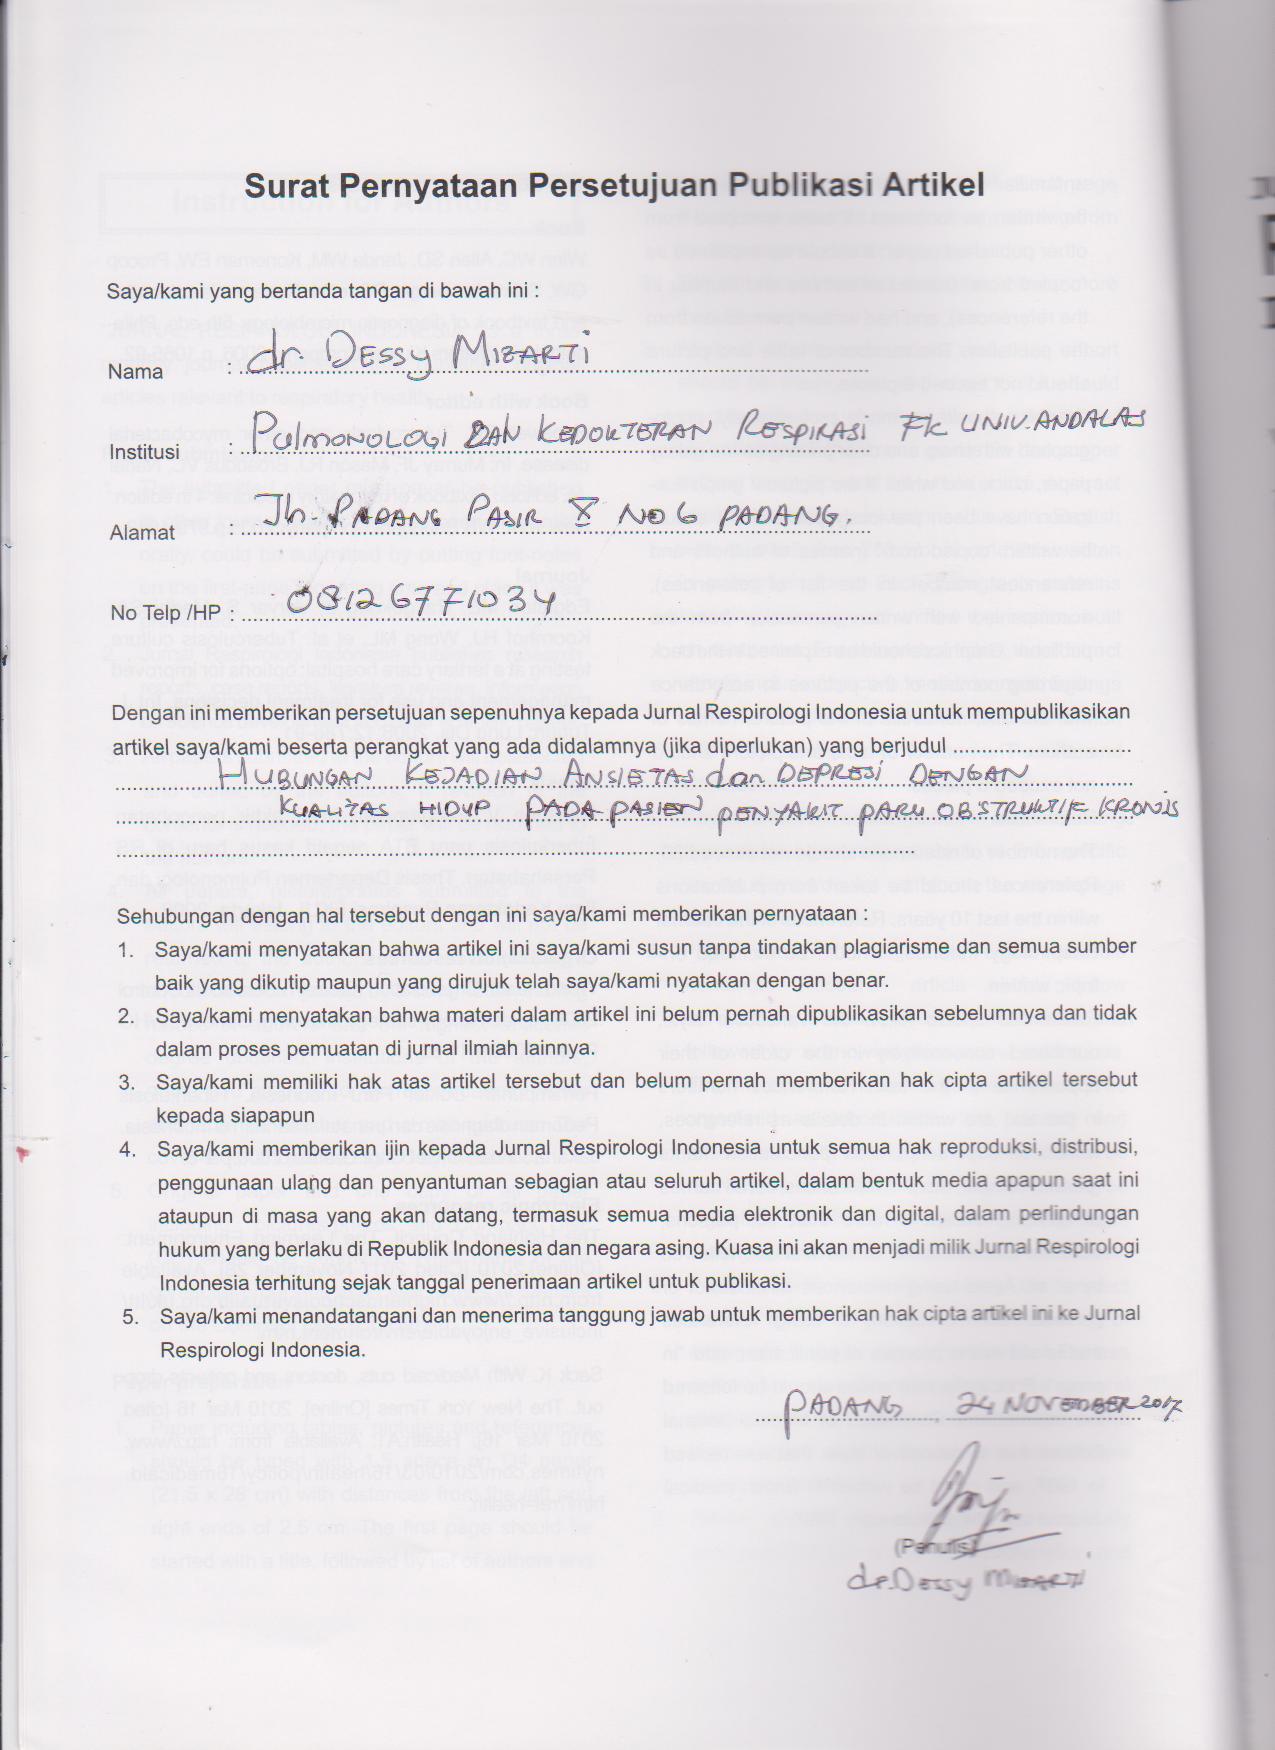 Surat Pernyataan Persetujuan Publikasi Artikel
Saya/kami yang bertanda tangan di bawah ini :
Nama : dr. DESSY MIZARTI
Institusi : PULMONOLOGI DAN KEDOKTERAN RESPIRASI FK UNIV. ANDALAS
Alamat : Jln. PADANG PASIR X NO 6 PADANG.
No Telp /HP : 081267710 34
Dengan ini memberikan persetujuan sepenuhnya kepada Jurnal Respirologi Indonesia untuk mempublikasikan
artikel saya/kami beserta perangkat yang ada didalamnya (jika diperlukan) yang berjudul
HUBUNGAN KEJADIAN ANSIETAS dan DEPRESI DENGAN
KUALITAS HIDUP PADA PASIEN PENYAKIT PARU OBSTRUKTIF KRONIS
Sehubungan dengan hal tersebut dengan ini saya/kami memberikan pernyataan :
1. Saya/kami menyatakan bahwa artikel ini saya/kami susun tanpa tindakan plagiarisme dan semua sumber
baik yang dikutip maupun yang dirujuk telah saya/kami nyatakan dengan benar.
2. Saya/kami menyatakan bahwa materi dalam artikel ini belum pernah dipublikasikan sebelumnya dan tidak
dalam proses pemuatan di jurnal ilmiah lainnya.
3. Saya/kami memiliki hak atas artikel tersebut dan belum pernah memberikan hak cipta artikel tersebut
kepada siapapun
4. Saya/kami memberikan ijin kepada Jurnal Respirologi Indonesia untuk semua hak reproduksi, distribusi,
penggunaan ulang dan penyantuman sebagian atau seluruh artikel, dalam bentuk media apapun saat ini
ataupun di masa yang akan datang, termasuk semua media elektronik dan digital, dalam perlindungan
hukum yang berlaku di Republik Indonesia dan negara asing. Kuasa ini akan menjadi milik Jurnal Respirologi
Indonesia terhitung sejak tanggal penerimaan artikel untuk publikasi.
5. Saya/kami menandatangani dan menerima tanggung jawab untuk memberikan hak cipta artikel ini ke Jurnal
Respirologi Indonesia.
PADANG, 24 NOVEMBER 2017
(Penulis)
dr. DESSY MIZARTI